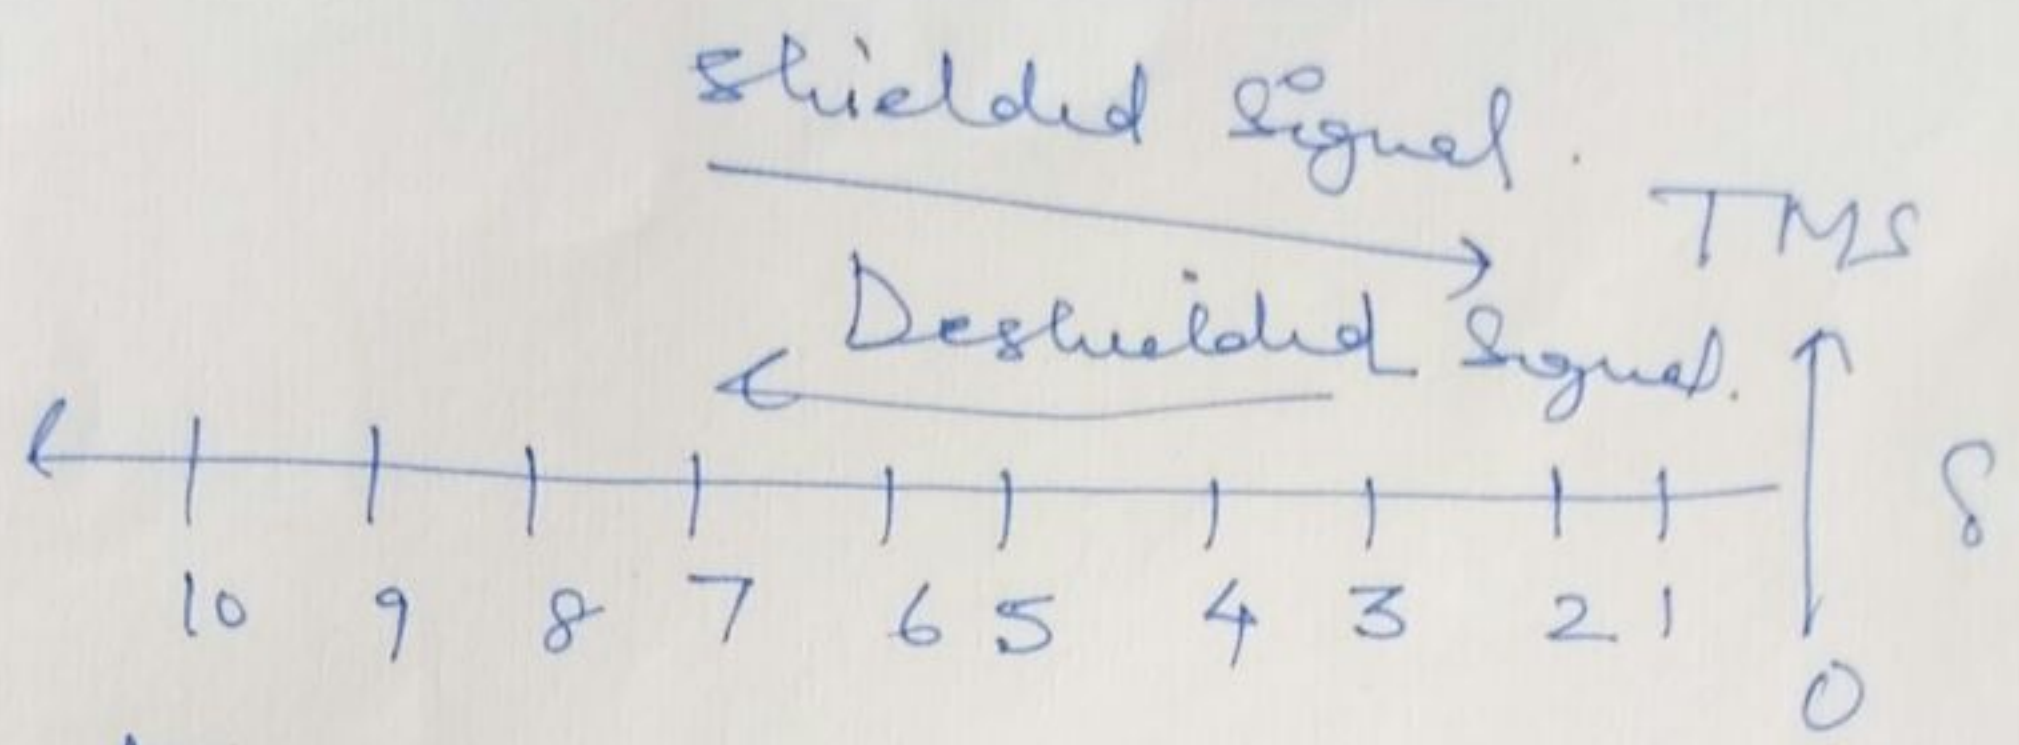 Shielded Signal.
TMS
Deshielded Signal.
δ
10 9 8 7 6 5 4 3 2 1
0